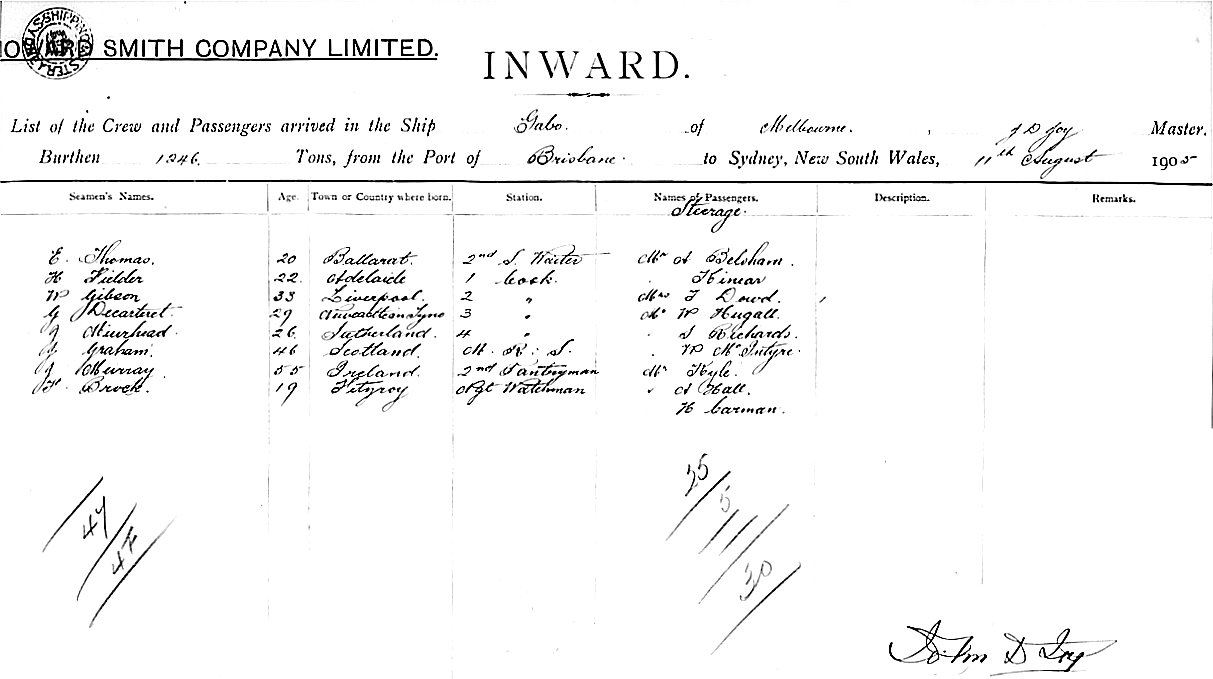 HOWARD SMITH COMPANY LIMITED.
INWARD.
List of the Crew and Passengers arrived in the Ship Gabo. of Melbourne. , J D Joy Master.
Burthen 1246. Tons, from the Port of Brisbane. to Sydney, New South Wales, 11th August 1905
Seamen's Names. Age. Town or Country where born. Station. Names of Passengers. Description. Remarks.
Steerage.
E. Thomas. 20 Ballarat. 2nd S. Waiter Mr A Belsham.
H Fielder 22. Adelaide 1 Cook. . Kinear
W Gibson 33 Liverpool. 2 " Mrs F Dowd.
G Decarteret. 29 Newcastle on Tyne 3 " Mr W Hugall.
J Muirhead 26. Sutherland. 4 " . S Richards.
J Graham. 46 Scotland. M. R. S. . W McIntyre.
J Murray. 55 Ireland. 2nd Pantryman Mr Kyle.
F. Brock. 19 Fitzroy Ngt Watchman " A Hall.
H Carman.
47/
35/
5/
11/
30/
John D Joy